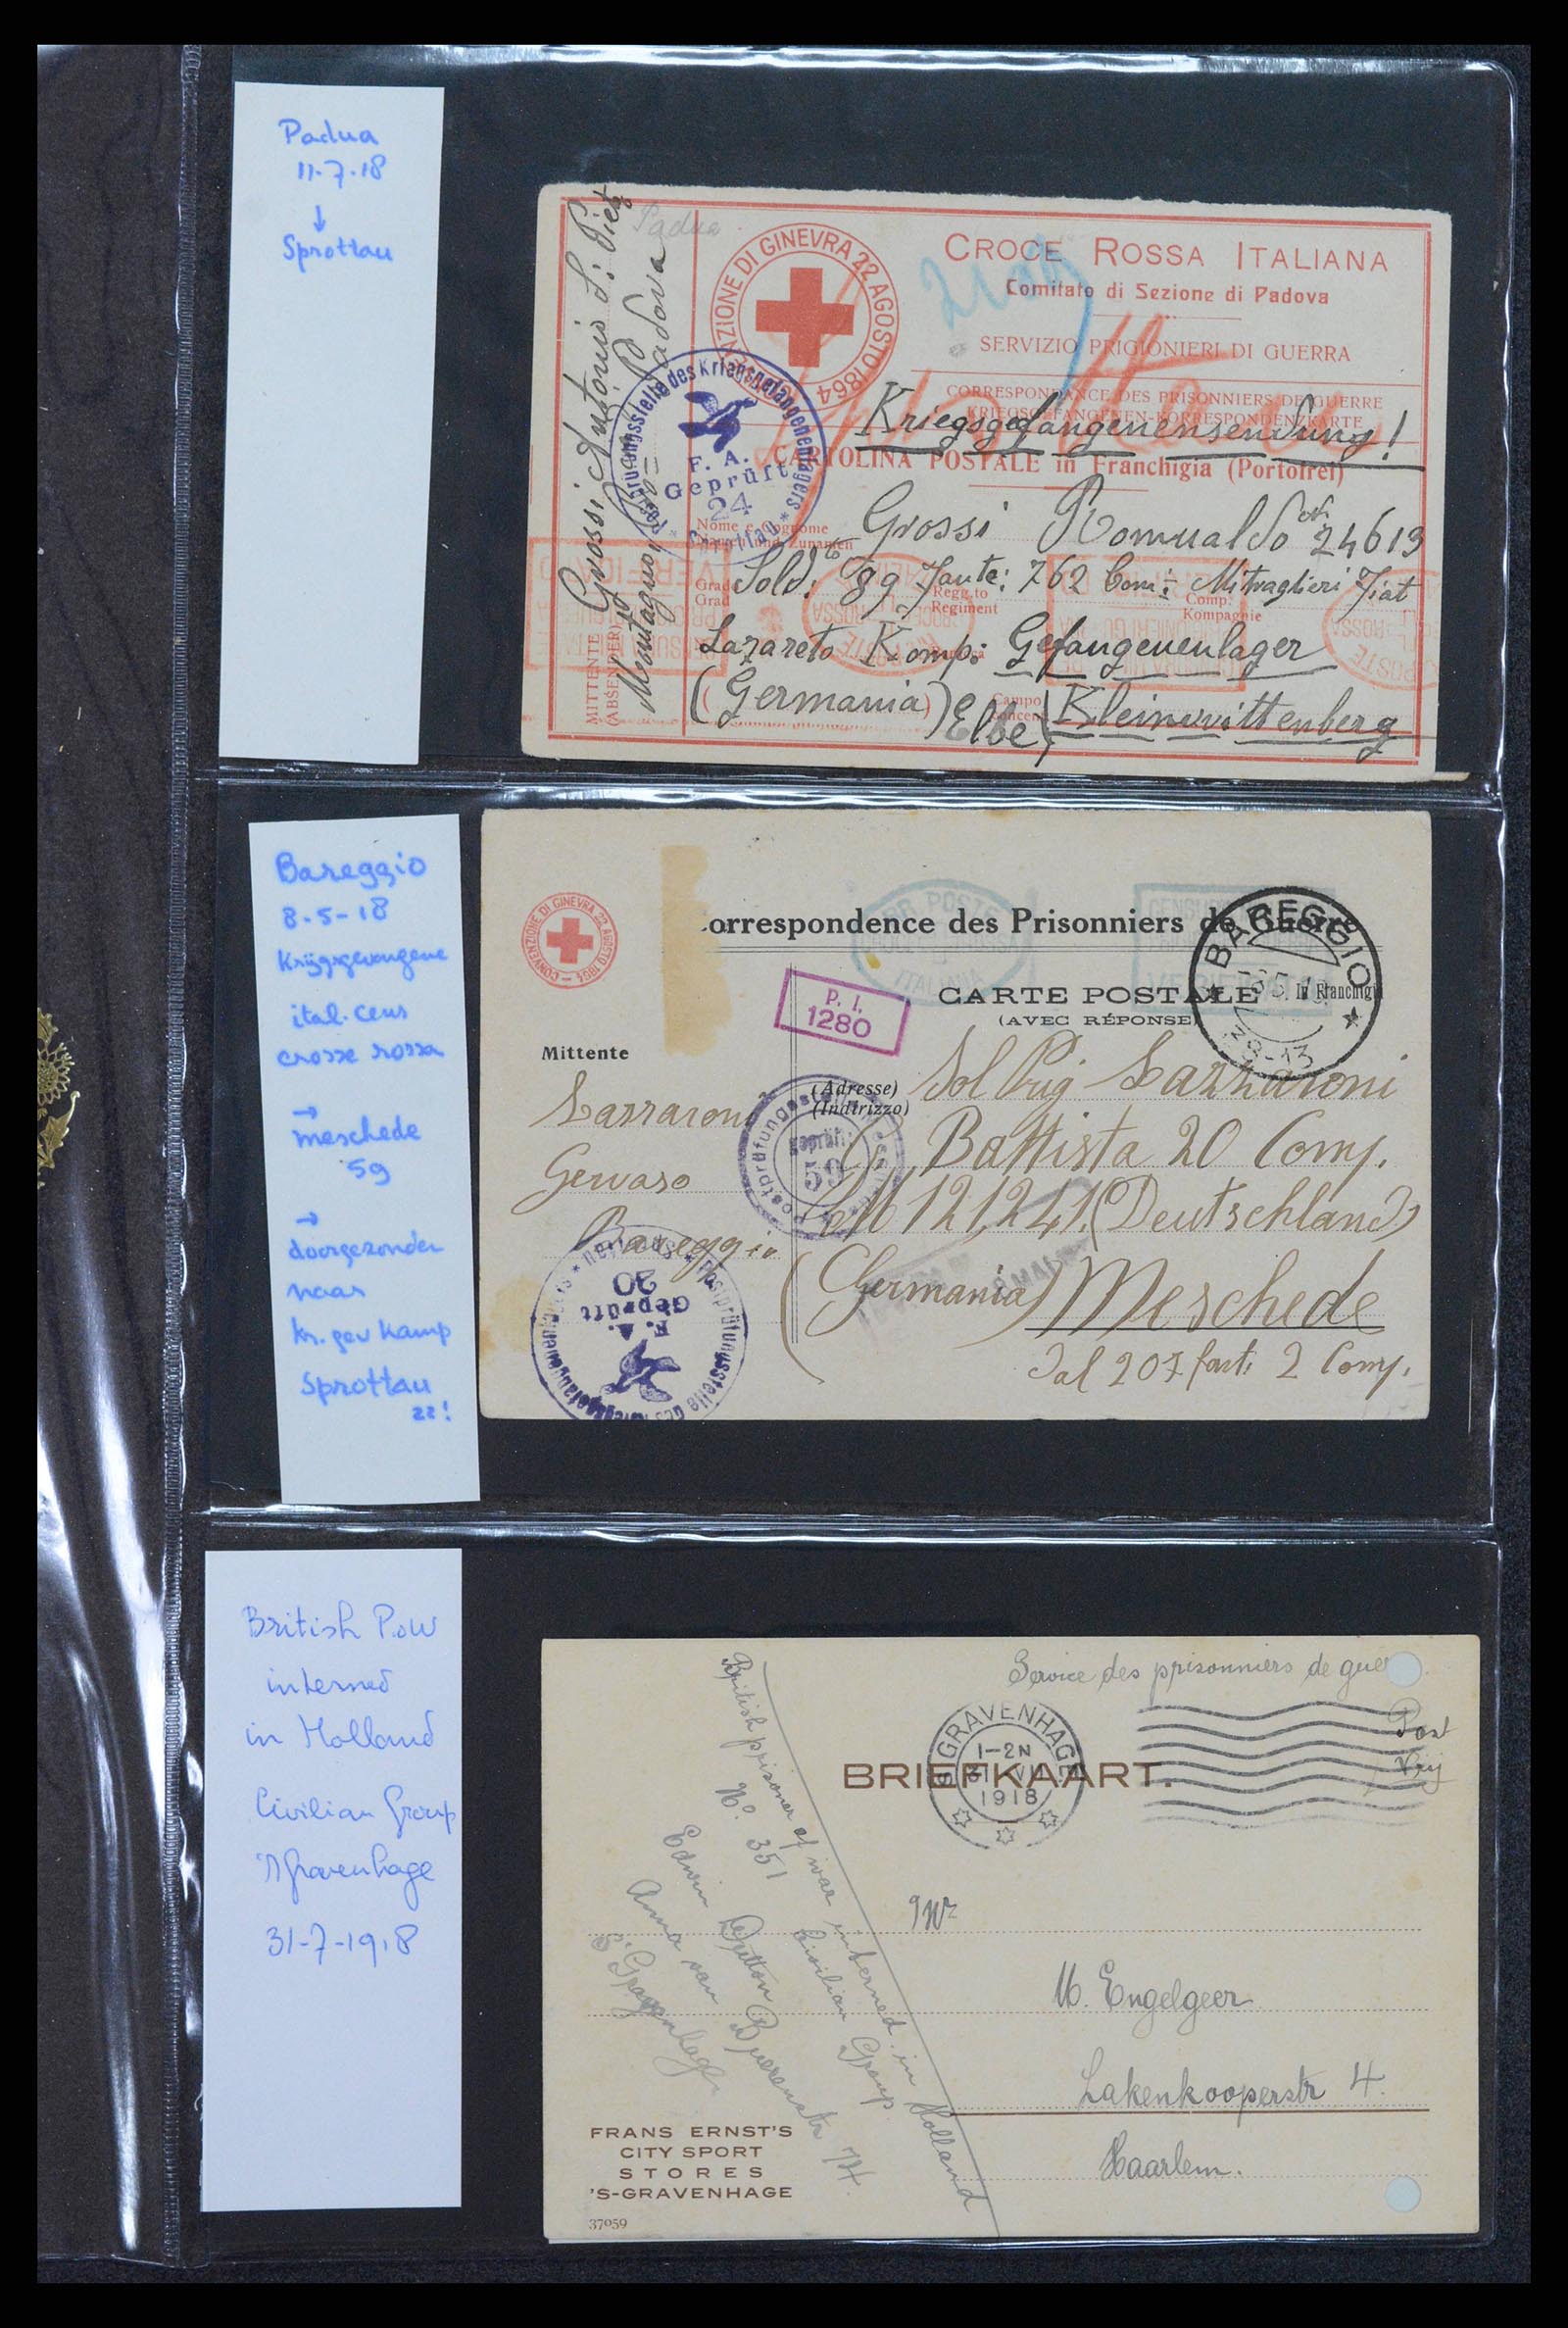 Padua
11-7-18
↓
Sprottau
Padua
CONVENZIONE DI GINEVRA 22 AGOSTO 1864
CROCE ROSSA ITALIANA
Comitato di Sezione di Padova
SERVIZIO PRIGIONIERI DI GUERRA
CORRESPONDANCE DES PRISONNIERS DE GUERRE
KRIEGSGEFANGENEN-KORRESPONDENZKARTE
Kriegsgefangenensendung!
CARTOLINA POSTALE in Franchigia (Portofrei)
Postprüfungsstelle des Kriegsgefangenenlagers * Sprottau *
F. A.
Geprüft
24
Nome e Cognome
Grossi Romualdo 24613
Grado
Grad
Sold: 89 Fante: 762 Com: Mitraglieri Fiat
Regg.to
Regiment
Comp.
Kompagnie
Lazareto Komp: Gefangenenlager
(Germania) Elbe Kleinwittenberg
Campo
MITTENTE
(ABSENDER)
Grossi Antonio
Padova
Bareggio
8-5-18
Krijgsgevangene
ital. cens
crosse rossa
→
meschede
59
→
doorgezonden
naar
kr. gev kamp
Sprottau
22!
CONVENZIONE DI GINEVRA 22 AGOSTO 1864
orrespondence des Prisonniers de Guerre
BAREGGIO
CARTE POSTALE In Franchigia
(AVEC RÉPONSE)
P. I.
1280
Mittente
Lazzaroni
Gervaso
Bareggio
(Adresse)
(Indirizzo)
Sol Prig Lazzaroni
Battista 20 Comp.
M 121,241. (Deutschland)
(Germania) Meschede
Dal 207 fant: 2 Comp.
Geprüft
59
F. A.
Geprüft
30
British P.o.W
interned
in Holland
Civilian Group
'sGravenhage
31-7-1918
Service des prisonniers de guer
Post
Vrij
'S GRAVENHAGE
1-2N
31 VII
1918
BRIEFKAART.
British prisoner of war interned in Holland
No. 351 Civilian Group
Edwin Dutton
Anna van Buerenstr 74.
S'Gravenhage
Mr
M. Engelgeer
Lakenkooperstr 4.
Haarlem.
FRANS ERNST'S
CITY SPORT
STORES
'S-GRAVENHAGE
37059